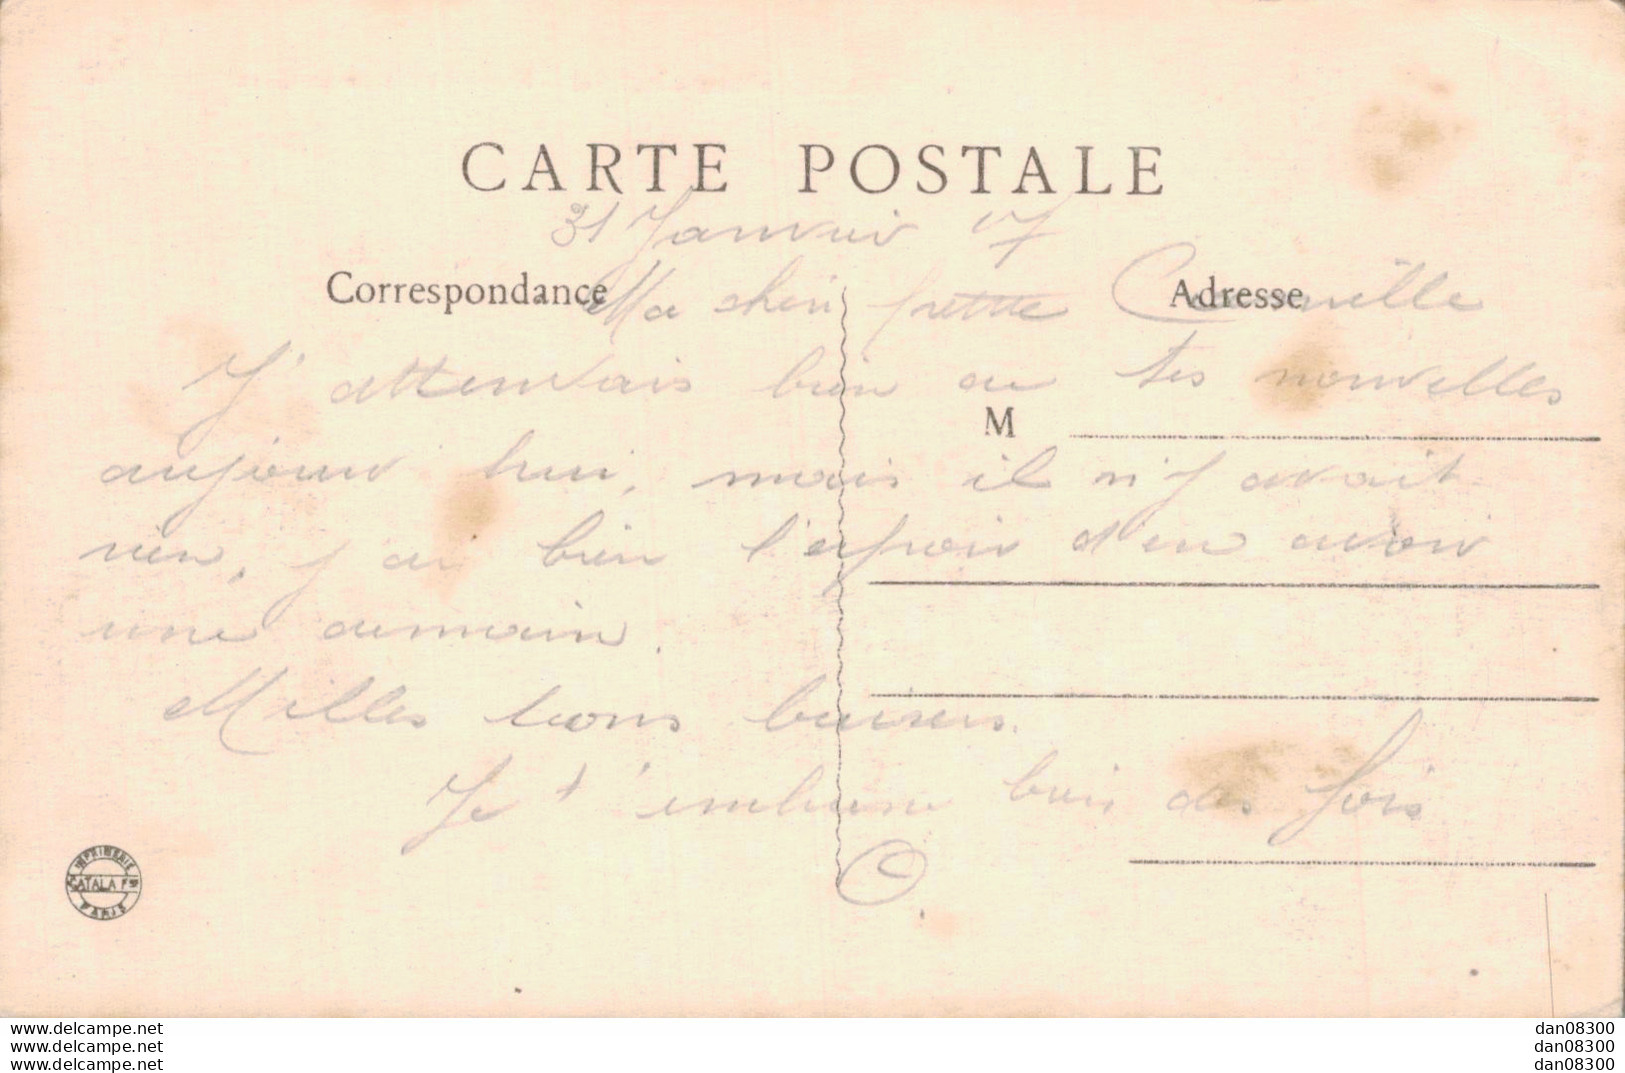 CARTE POSTALE
31 Janvier 17
Correspondance
Adresse
Ma cheri petite Camille
J'attendais bien au tes nouvelles
M
aujour hui, mais il n'y avait
rien, j ai bien l'espoir d'en avoir
une demain.
Milles bons baisers.
Je t'embrasse bien des fois
IMPRIMERIE
CATALA Fres
PARIS
www.delcampe.net
www.delcampe.net
www.delcampe.net
dan08300
dan08300
dan08300